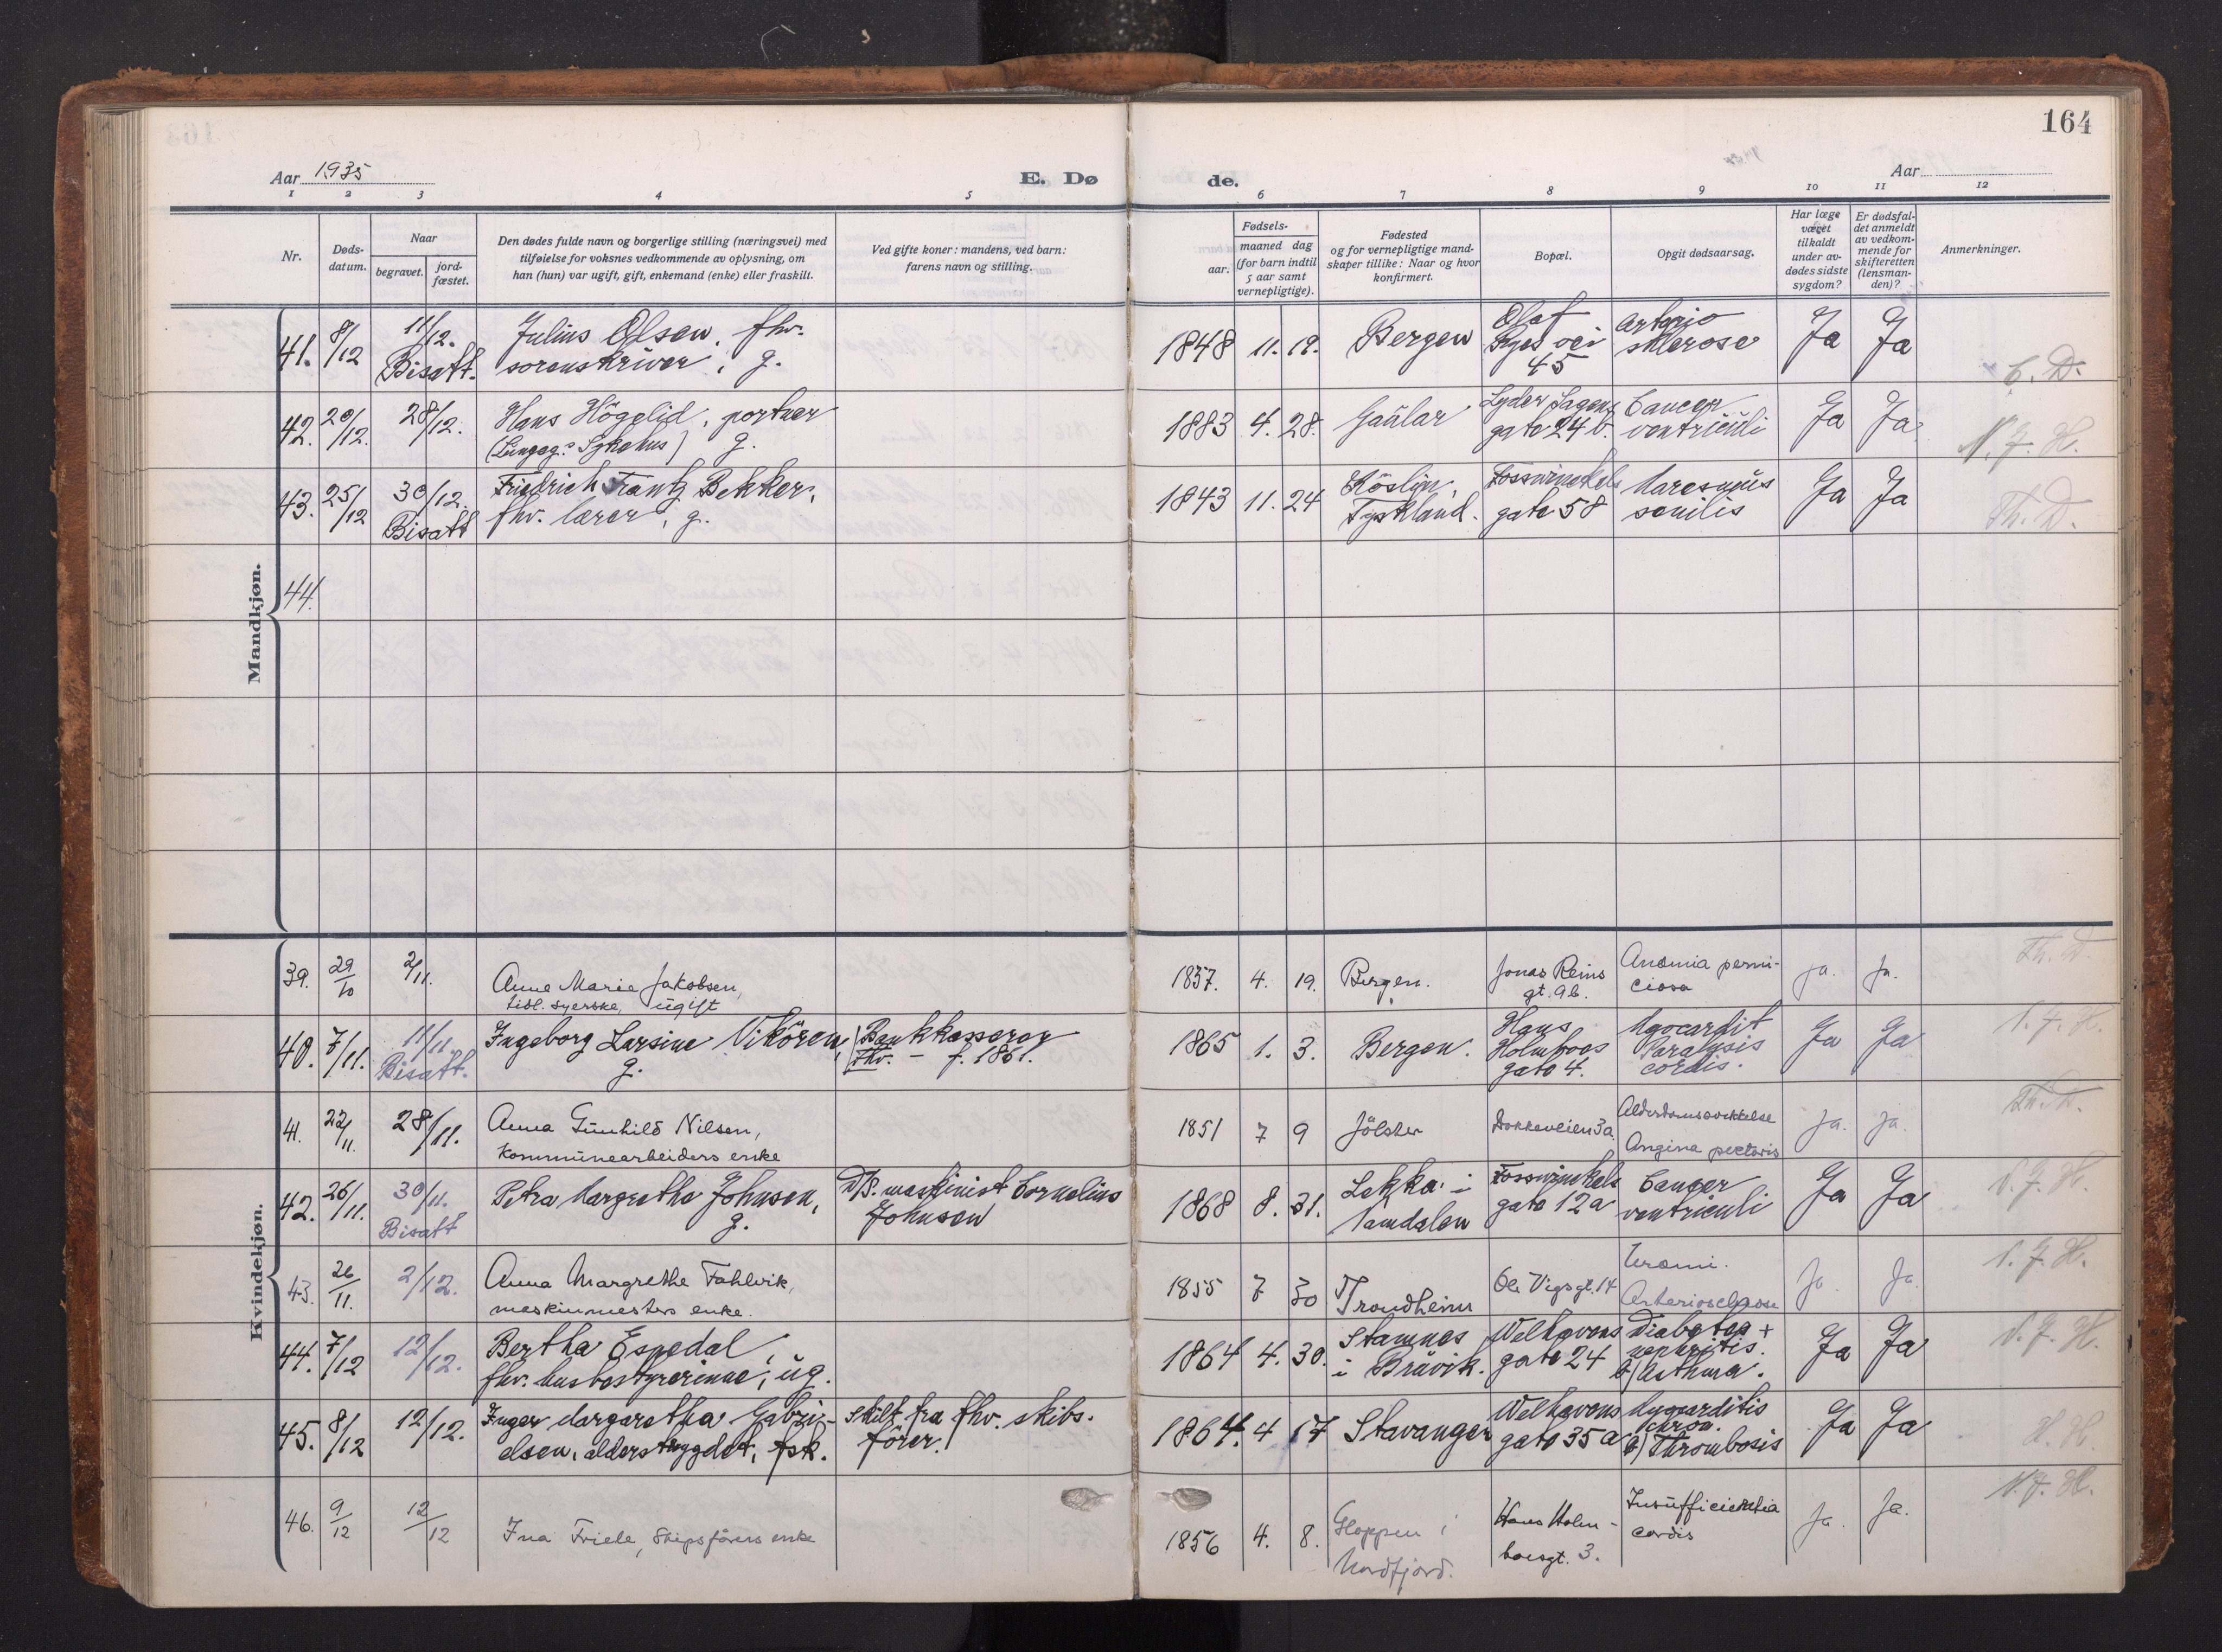 164
Aar 1935
E. Dø
de.
Aar
1 2 3 4 5 6 7 8 9 10 11 12
Nr.
Døds-
datum.
Naar
begravet.
jord-
fæstet.
Den dødes fulde navn og borgerlige stilling (næringsvei) med
tilføielse for voksnes vedkommende av oplysning, om
han (hun) var ugift, gift, enkemand (enke) eller fraskilt.
Ved gifte koner: mandens, ved barn:
farens navn og stilling.
Fødsels-
aar.
maaned dag
(for barn indtil
5 aar samt
vernepligtige).
Fødested
og for vernepligtige mand-
skaper tillike: Naar og hvor
konfirmert.
Bopæl.
Opgit dødsaarsag.
Har læge
været
tilkaldt
under av-
dødes sidste
sygdom?
Er dødsfal-
det anmeldt
av vedkom-
mende for
skifteretten
(lensman-
den)?
Anmerkninger.
Mandkjøn.
41. 8/12 11/12. Bisatt.
Julius Olsen, fhv.
sorenskriver, g.
1848 11. 19. Bergen
Olaf
Ryes vei
45
Arterio
sklerose
Ja Ja
C. D.
42. 20/12. 28/12.
Hans Höggelid, portner
(Lungeg.s Sykehus) g.
1883 4. 28. Gaülar
Lyder Sagens
gate 24 b.
Cancer
ventriculi
Ja Ja
N. J. H.
43. 25/12 30/12. Bisatt
Friedrich Frantz Bekker,
fhv. lærer, g.
1843 11. 24
Köslin,
Tyskland.
Fosswinckels
gate 58
Maresmüs
senilis
Ja Ja
Th. D.
44.
Kvindekjøn.
39. 29/10 2/11.
Anne Marie Jakobsen,
tidl. syerske, ügift
1857. 4. 19. Bergen.
Jonas Reins
gt. 9b.
Anæmia perni-
ciosa
ja. ja.
Th. D
40. 7/11. 11/11. Bisatt.
Ingeborg Larsine Vikören,
g.
Bankkasserer
fhv. - f. 1861.
1865 1. 3. Bergen.
Hans
Holmboes
gate 4.
Myocardit
Paralysis
cordis.
Ja Ja
N. J. H.
41. 22/11. 28/11.
Anna Günhild Nilsen,
Kommünearbeiders enke
1851 7 9 Jölster
Dokkeveien 3a.
Alderdomssvekkelse
Angina pectoris
Ja. Ja.
Th. D.
42. 26/11. 30/11. Bisatt
Petra Margrethe Johnsen,
g.
D/S. maskinist Cornelius
Johnsen
1868 8. 31.
Lekka i
Namdalen
Fosswinckels
gate 12a
Cancer
ventriculi
Ja Ja
N. J. H.
43. 26/11. 2/12.
Anna Margrethe Fahlvik,
maskinmesters enke.
1855 7 30 Trondheim
Ole Vigs gt. 14
Uræmi.
Arteriosclerose
Ja. Ja.
N. J. H.
44. 7/12 12/12.
Bertha Espedal,
fhv. husbestyrerinne, üg.
1864 4. 30.
Stamnes
i Brüvik.
Welhavens
gate 24
Diabetes +
nephritis.
b) Asthma.
Ja Ja
N. J. H.
45. 8/12 12/12.
Inger Margaretha Gabri-
elsen, alderstrygdet, fsk.
Skilt fra fhv. skibs.
förer.
1864. 4 17 Stavanger
Welhavens
gate 35a
Myocarditis
chron.
b) Thrombosis
Ja Ja
H. H.
46. 9/12 12/12
Ina Friele, Skipsförers enke
1856 4. 8.
Gloppen i
Nordfjord.
Hans Holm-
boesgt. 3.
Insüfficientia
cordis
Ja. Ja.
N. J. H.